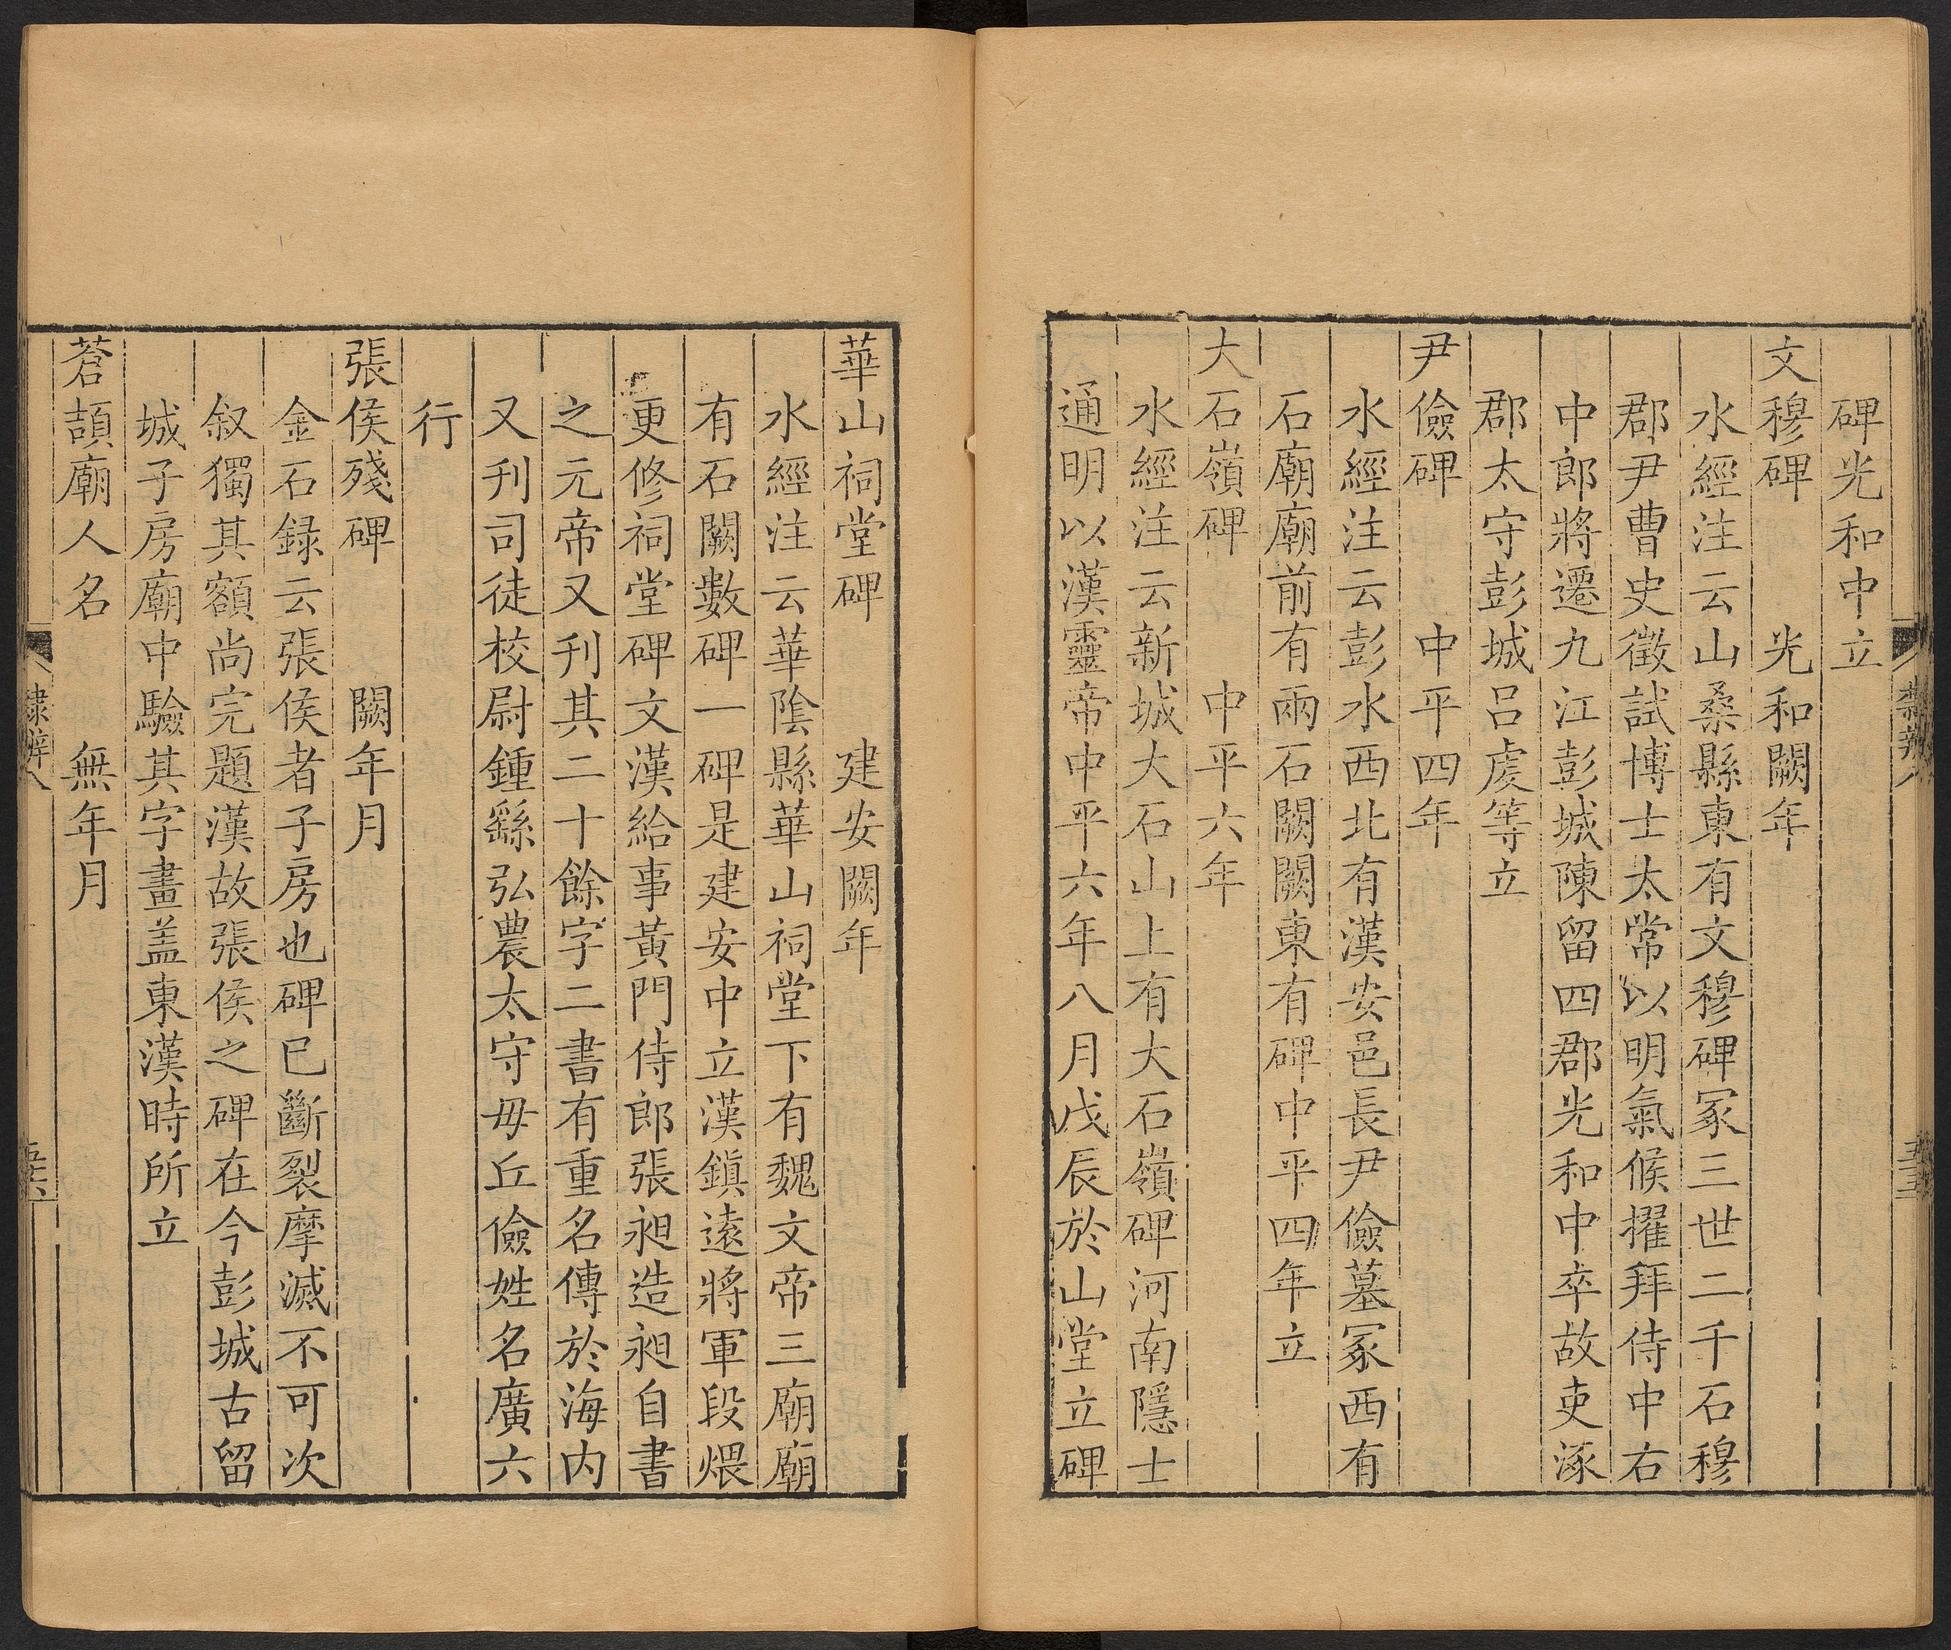 碑光和中立
文穆碑　光和闕年
水經注云山桑縣東有文穆碑冢三世二千石穆
郡尹曹史徵試博士太常以明氣候擢拜侍中右
中郎將遷九江彭城陳留四郡光和中卒故吏涿
郡太守彭城呂虔等立
尹儉碑　中平四年
水經注云彭水西北有漢安邑長尹儉墓冢西有
石廟廟前有兩石闕闕東有碑中平四年立
大石嶺碑　中平六年
水經注云新城大石山上有大石嶺碑河南隱士
通明以漢靈帝中平六年八月戊辰於山堂立碑
華山祠堂碑　建安闕年
水經注云華陰縣華山祠堂下有魏文帝三廟廟
有石闕數碑一碑是建安中立漢鎮遠將軍段煨
更修祠堂碑文漢給事黃門侍郎張昶造昶自書
之元帝又刊其二十餘字二書有重名傳於海内
又刊司徒校尉鍾繇弘農太守毋丘儉姓名廣六
行
張侯殘碑　闕年月
金石録云張侯者子房也碑已斷裂摩滅不可次
叙獨其額尚完題漢故張侯之碑在今彭城古留
城子房廟中驗其字畫盖東漢時所立
蒼頡廟人名　無年月
隸辨八